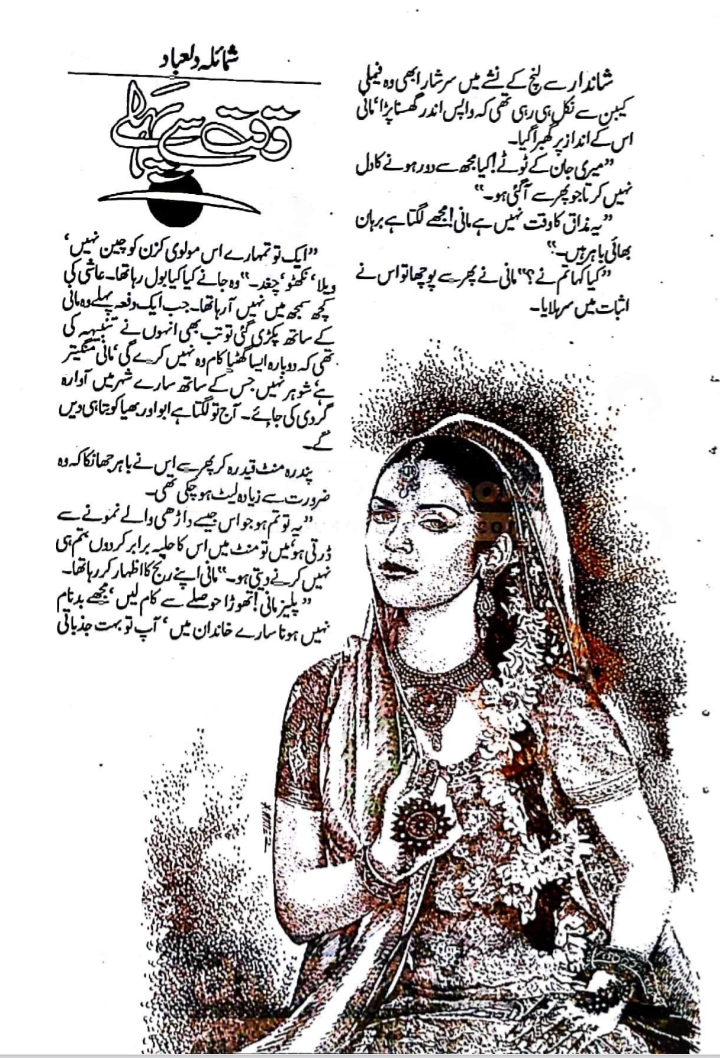 شمائلہ دلعباد
وقت سے پہلے
شاندار سے لنچ کے نشے میں سرشار ابھی وہ فیملی
کیبن سے نکل ہی رہی تھی کہ واپس اندر گھسنا پڑا‘ مانی
اس کے انداز پر گھبرا گیا۔
”میری جان کے ٹوٹے! کیا مجھ سے دور ہونے کا دل
نہیں کرتا جو پھر سے آ گئی ہو۔“
”یہ مذاق کا وقت نہیں ہے مانی! مجھے لگتا ہے برہان
بھائی باہر ہیں۔“
”کیا کہا تم نے؟“ مانی نے پھر سے پوچھا تو اس نے
اثبات میں سر ہلایا۔
”ایک تو تمہارے اس مولوی کزن کو چین نہیں‘
ویلا‘ نکھٹو‘ چغد۔“ وہ جانے کیا کیا بول رہا تھا۔ عاشی کی
کچھ سمجھ میں نہیں آ رہا تھا۔ جب ایک دفعہ پہلے وہ مانی
کے ساتھ پکڑی گئی تو تب بھی انہوں نے تنبیہہ کی
تھی کہ دوبارہ ایسا گھٹیا کام وہ نہیں کرے گی‘ مانی منگیتر
ہے‘ شوہر نہیں جس کے ساتھ سارے شہر میں آوارہ
گردی کی جائے۔ آج تو لگتا ہے ابو اور بھیا کو بتا ہی دیں
گے۔
پندرہ منٹ قید رہ کر پھر سے اس نے باہر جھانکا کہ وہ
ضرورت سے زیادہ لیٹ ہو چکی تھی۔
”یہ تو تم ہو جو اس جیسے داڑھی والے نمونے سے
ڈرتی ہو‘ میں تو منٹ میں اس کا حلیہ برابر کر دوں‘ تم ہی
نہیں کرنے دیتی ہو۔“ مانی اپنے رنج کا اظہار کر رہا تھا۔
”پلیز مانی! تھوڑا حوصلے سے کام لیں‘ مجھے بدنام
نہیں ہونا سارے خاندان میں‘ آپ تو بہت جذباتی